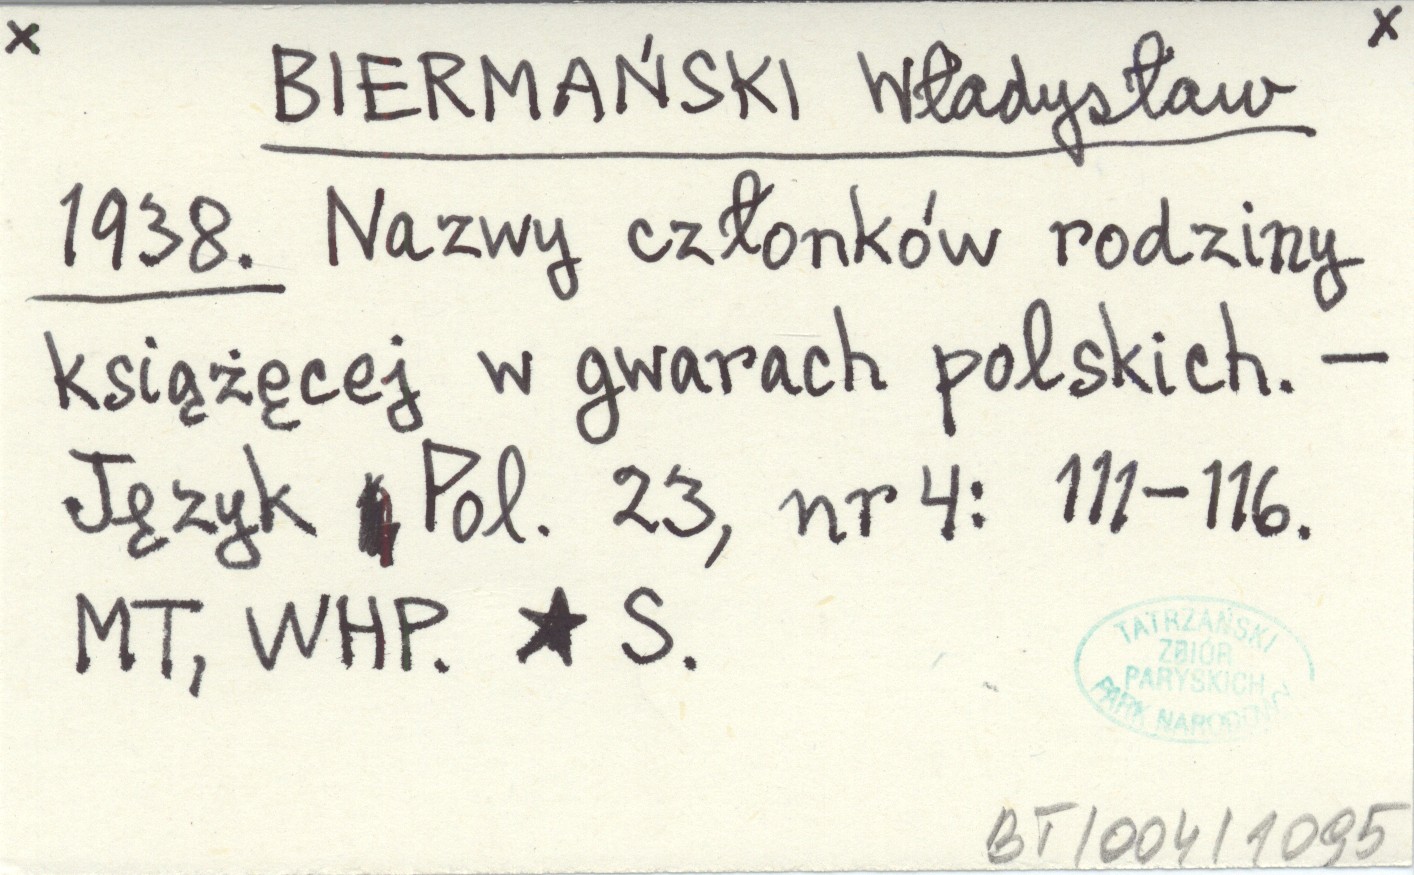 x x
BIERMAŃSKI Władysław
1938. Nazwy członków rodziny
książęcej w gwarach polskich. —
Język Pol. 23, nr 4: 111-116.
MT, WHP. ★ S.
TATRZAŃSKI
ZBIÓR
PARYSKICH
PARK NARODOWY
BT/004/1095